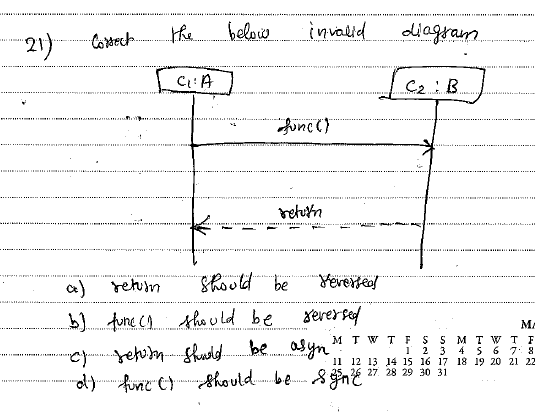 21) Correct the below invalid diagram
C1:A
C2 : B
func()
return
a) return should be reversed
b) func() should be reversed
c) return should be asyn
d) func() should be sync
MA
M T W T F S S M T W T F
1 2 3 4 5 6 7 8
11 12 13 14 15 16 17 18 19 20 21 22
25 26 27 28 29 30 31